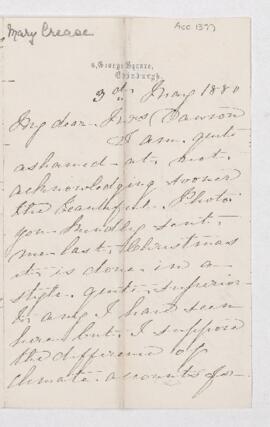 Mary Crease
Acc 1377
2, George Square,
Edinburgh.
3d May 1880
My dear Mrs Dawson
I am quite
ashamed at not
acknowledging sooner
the beautiful Photo:
you kindly sent
me last Christmas
it is done in a
style quite superior
to any I have seen
here but I suppose
the difference of
climate accounts for